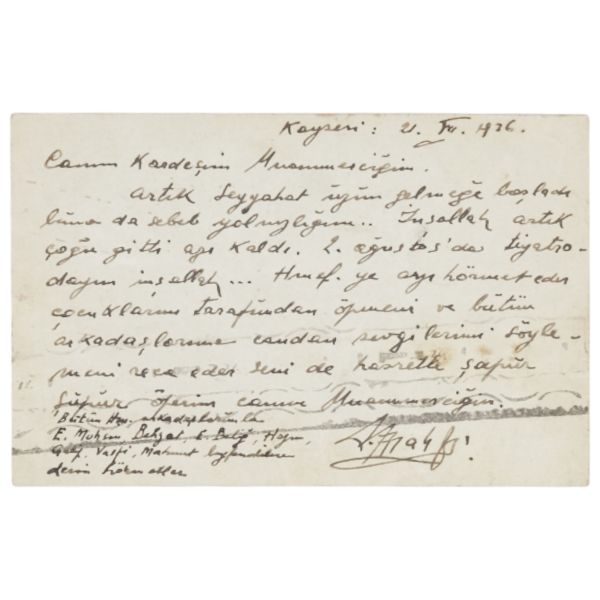 Kayseri : 21. VII. 1936.
Canım Kardeşim Muammerciğim.
artık Seyyahat uzun gelmeğe başladı
buna da sebeb yalnızlığım.. İnşallah artık
çoğu gitti azı kaldı. 2. ağustos'da tiyatro-
dayım inşallah... ye arzı hörmet eder
çocuklarımı tarafımdan öpmeni ve bütün
arkadaşlarıma candan sevgilerimi söyle-
meni reca eder seni de hasretle şapur
şupur öperim canım Muammerciğim.
Bütün arkadaşlarımla
E. Muhsin, Behzat, Hazım,
Vasfi, Mahmut beyfendilere
derin hörmetler